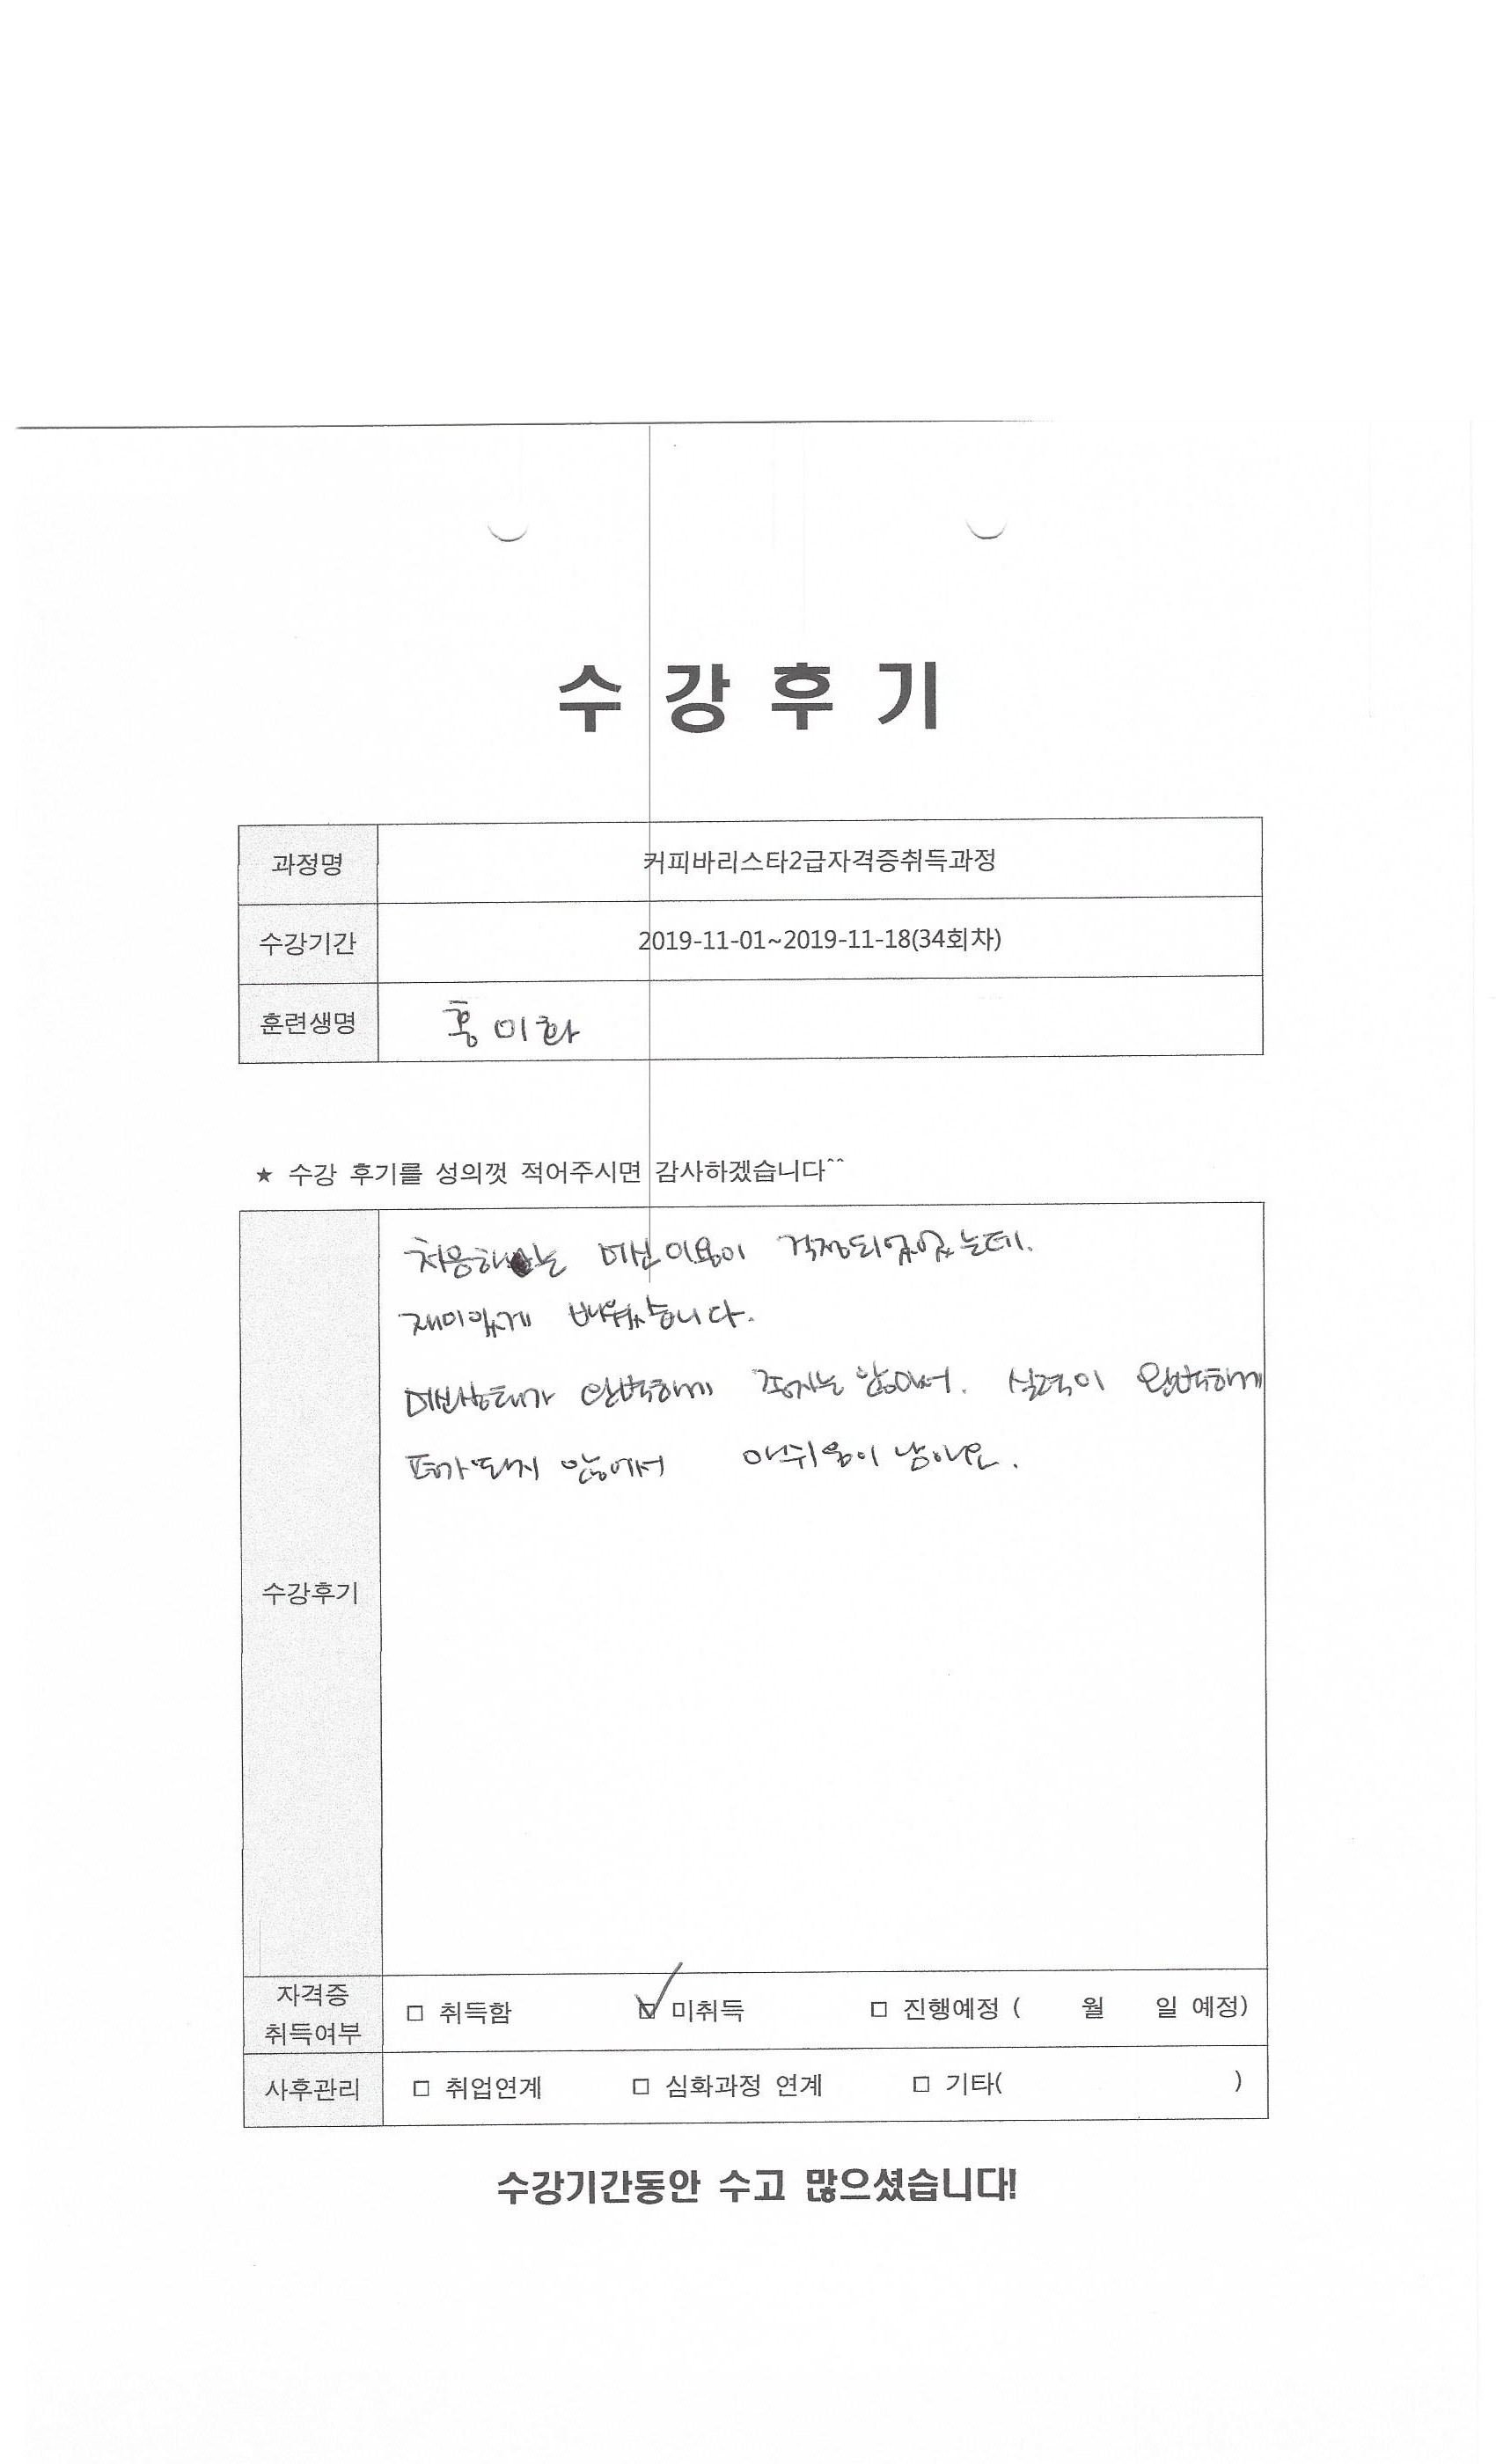 수 강 후 기
과정명 커피바리스타2급자격증취득과정
수강기간 2019-11-01~2019-11-18(34회차)
훈련생명 홍미화
★ 수강 후기를 성의껏 적어주시면 감사하겠습니다^^
처음하는 머신 이용이 걱정되었었는데.
재미있게 배웠습니다.
머신상태가 완벽하게 좋지는 않아서. 실력이 완벽하게
평가되지 않에서 아쉬움이 남아요.
수강후기
자격증
취득여부
□ 취득함 ☑ 미취득 □ 진행예정 ( 월 일 예정)
사후관리 □ 취업연계 □ 심화과정 연계 □ 기타( )
수강기간동안 수고 많으셨습니다!